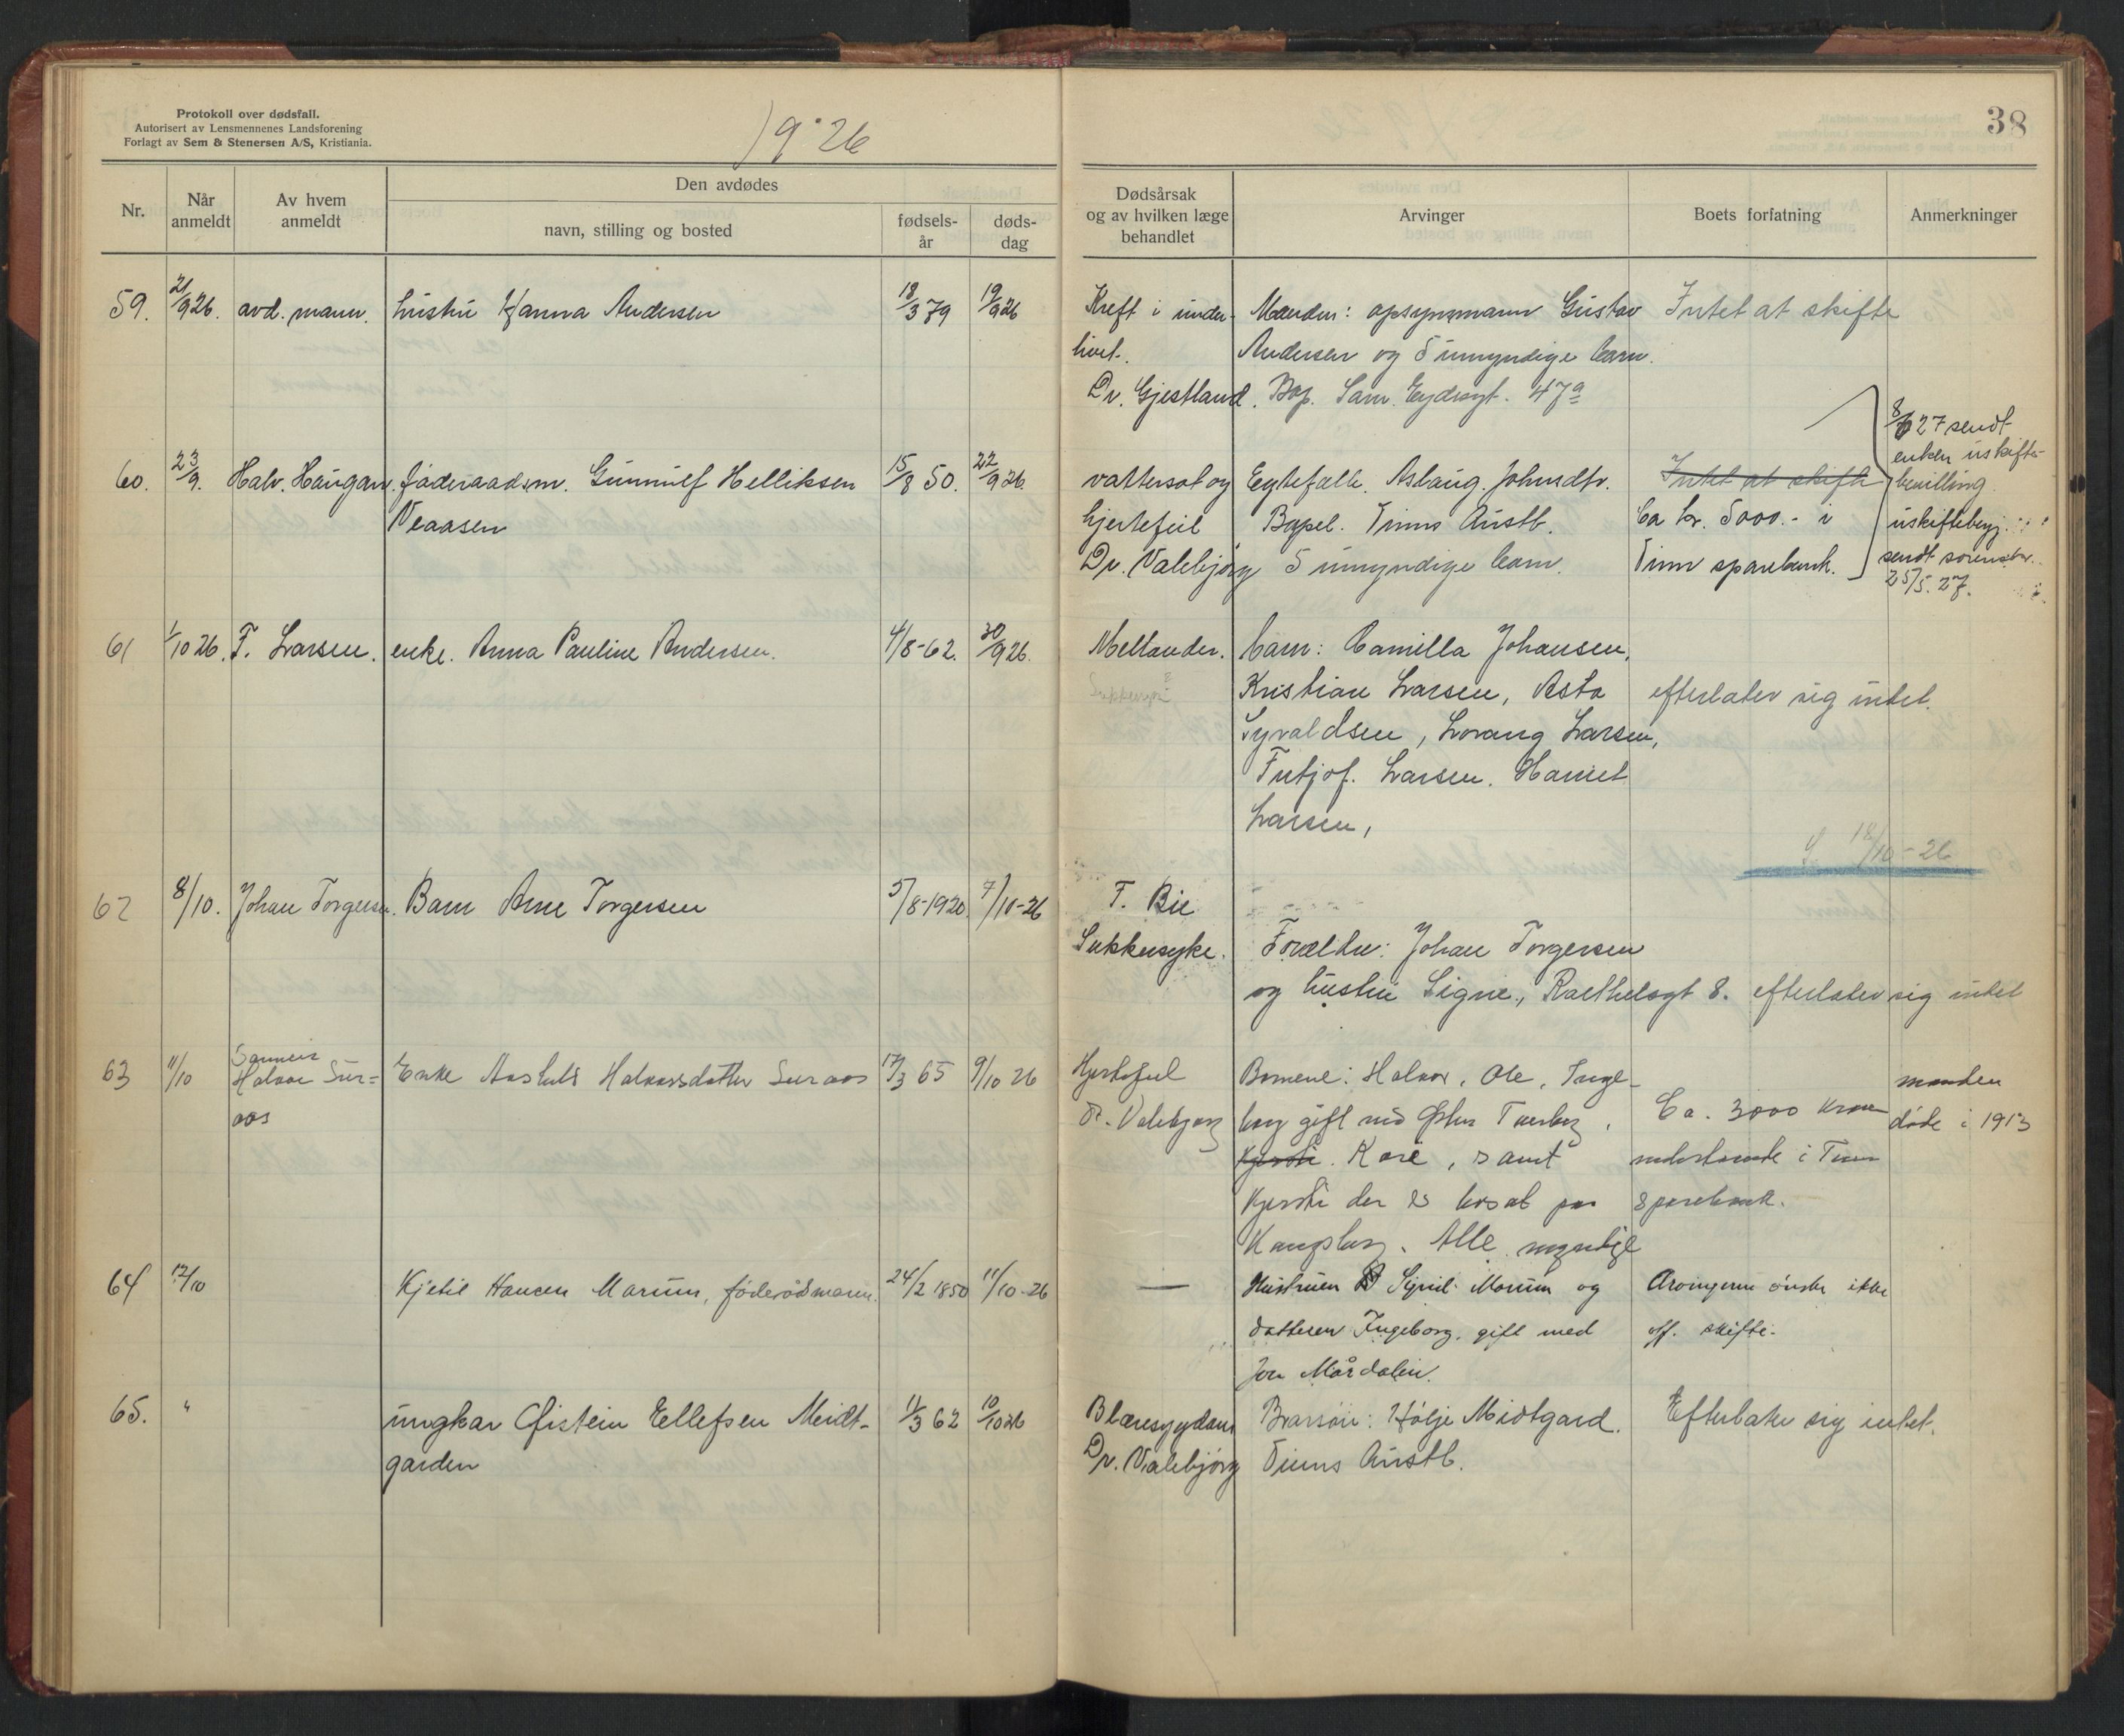 Protokoll over dødsfall.
Autorisert av Lensmennenes Landsforening
Forlagt av Sem & Stenersen A/S, Kristiania.
1926
38
Nr.
Når anmeldt
Av hvem anmeldt
Den avdødes
navn, stilling og bosted
fødsels-år
døds-dag
Dødsårsak og av hvilken læge behandlet
Arvinger
Boets forfatning
Anmerkninger
59. 21/9 26. avd. mann. hustru Hanna Andersen 18/3 79 19/9 26
Kreft i under-
livet.
Dr. Gjestland.
Manden: opsynsmann Gustav
Andersen og 5 umyndige barn.
Bop. Sam. Eydesgt. 47a
Intet at skifte
60. 23/9. Halv. Haugan. føderaadsm. Gunnulf Helliksen 15/8 50. 22/9 26.
Veaasen
vattersot og
hjertefeil
Dr. Valebjørg
Egtefælle. Aslaug. Johnsdtr.
Bopel. Tinns Austb.
5 umyndige barn.
Intet at skifte
Ca kr. 5000.- i
Tinn sparebank.
8/6 27 sendt
enken uskifte-
bevilling
uskiftebegj.
sendt sorenskr.
25/5. 27.
61 1/10 26. F. Larsen. enke. Anna Pauline Andersen. 4/8-62. 30/9 26.
Mellander.
barn: Camilla Johansen,
Kristian Larsen, Asta
Syvaldsen, Lorang Larsen,
Fritjof. Larsen. Harriet
Larsen,
efterlater sig intet.
S 18/10-26
62 8/10. Johan Torgersen. Barn Arne Torgersen 5/8-1920 7/10-26
F. Bie
Sukkersyke.
Forældre: Johan Torgersen
og hustru Signe, Raethelsgt 8. efterlater sig intet
63 11/10 Sønnen
Halvor Sur=
aas
Enke Aashild Halvorsdatter Suraas 17/3 65 9/10 26
Hjertefeil
Dr. Valebjørg
Børnene: Halvor, Ole, Inge-
borg gift med
Kjersti. Kari, samt
Kjersti der er bosat paa
Kongsberg. Alle myndige
Ca. 3000 kroner
indestaaende i Tinn
sparebank.
manden
døde i 1913
64 12/10 Kjetil Hansen Marum, føderådsmann. 24/2 1850 11/10-26
—
Hustruen Sigrid Marum og
datteren Ingeborg, gift med
Jon Mårdalen.
Arvingerne ønsker ikke
off. skifte.
65. " ungkar Øistein Ellefsen Meidt-
garden
11/3 62 10/10 26
Blæresygdom
Dr. Valebjørg
Brorsøn: Hølje Midtgard.
Tinns Austb.
Efterlater sig intet.